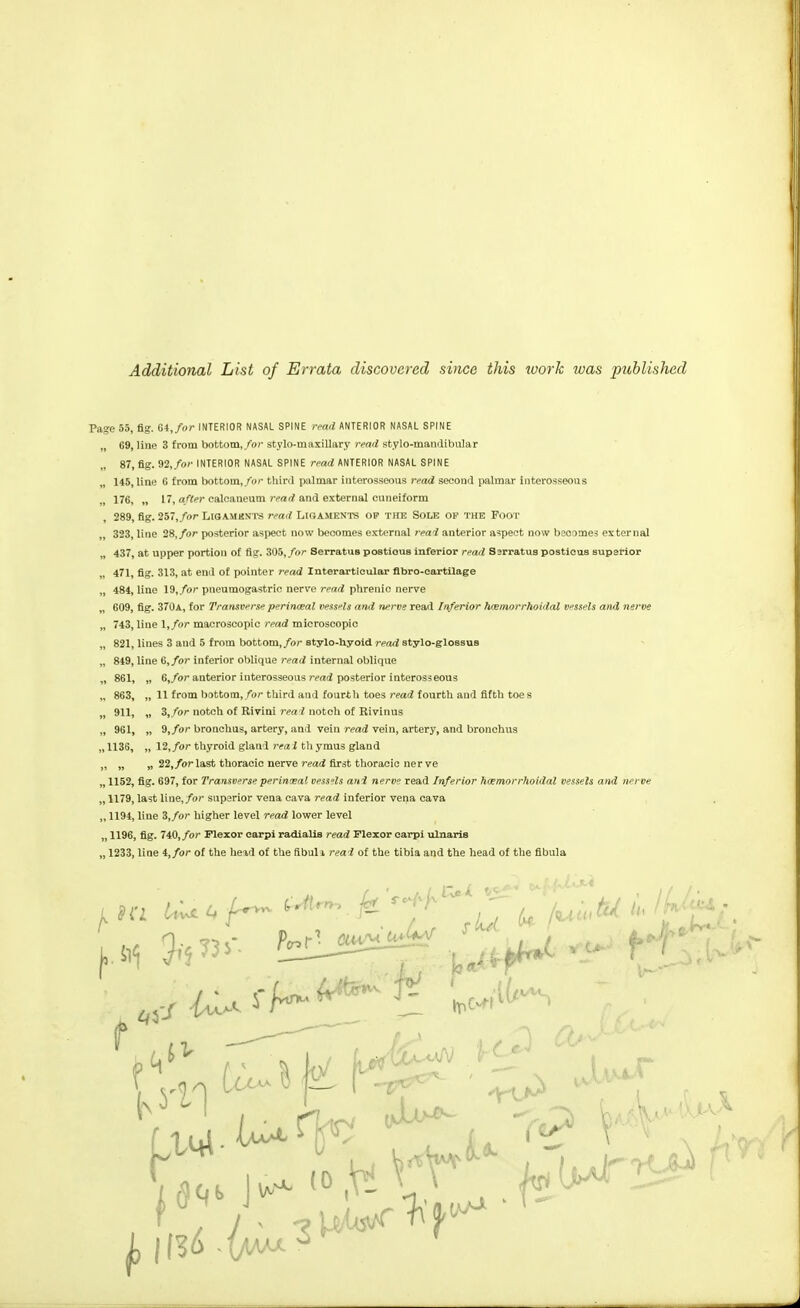 Additional List of Errata discovered since this work was published
Page 55, fig. 64, for INTERIOR NASAL SPINE read ANTERIOR NASAL SPINE
„ 69, line 3 from bottom, for stylo-maxillary read stylo-mandibular
„ 87, fig. 92, for INTERIOR NASAL SPINE read ANTERIOR NASAL SPINE
„ 145, line 6 from bottom, for third palmar interosseous read second palmar interosseous
„ 176, „ 17, after calcaneum read and external cuneiform
, 289, fig. 257, for LIGAMENTS read LIGAMENTS OF THE SOLE OF THE FOOT
„ 323, line 28, for posterior aspect now becomes external read anterior aspect now becomes external
„ 437, at upper portion of fig. 305, for Serratus posticus inferior read Serratus posticus superior
„ 471, fig. 313, at end of pointer read Interarticular fibro-cartilage
„ 484, line 19, for pneumogastric nerve read phrenic nerve
„ 609, fig. 370A, for Transverse perinæal vessels and nerve read Inferior hæmorrhoidal vessels and nerve
„ 743, line 1, for macroscopic read microscopic
„ 821, lines 3 and 5 from bottom, for stylo-hyoid read stylo-glossus
„ 849, line 6, for inferior oblique read internal oblique
„ 861, „ 6, for anterior interosseous read posterior interosseous
„ 863, „ 11 from bottom, for third and fourth toes read fourth and fifth toes
„ 911, „ 3, for notch of Rivini read notch of Rivinus
„ 961, „ 9, for bronchus, artery, and vein read vein, artery, and bronchus
„ 1136, „ 12, for thyroid gland read thymus gland
„ „ „ 22, for last thoracic nerve read first thoracic nerve
„ 1152, fig. 697, for Transverse perinæal vessels and nerve read Inferior hæmorrhoidal vessels and nerve
„ 1179, last line, for superior vena cava read inferior vena cava
„ 1194, line 3, for higher level read lower level
„ 1196, fig. 740, for Flexor carpi radialis read Flexor carpi ulnaris
„ 1233, line 4, for of the head of the fibula read of the tibia and the head of the fibula
line 4 from bottom for
Post
line 5 from bottom for
line
line
line 10 for
p 1136 line 3